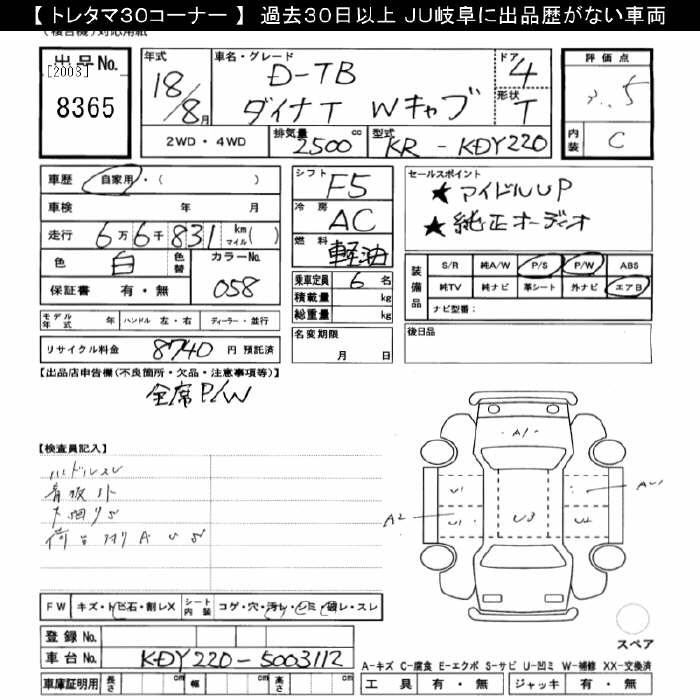 【 トレタマ30コーナー 】 過去30日以上 JU岐阜に出品歴がない車両
出品No.
[2003]
8365
年式
18/8月
車名・グレード
D-TB
ダイナT Wキャブ
ドア
4
形状
T
2WD・4WD
排気量
2500 cc
型式
KR-KDY220
評価点
5
内装
C
車歴
自家用・( )
車検 年 月
走行 6万6千831 km マイル( )
色 白 色替 カラーNo. 058
保証書 有・無
シフト
F5
冷房
AC
燃料
軽油
乗車定員 6 名
積載量 kg
総重量 kg
セールスポイント
★ アイドルUP
★ 純正オーディオ
装備品
S/R 純A/W P/S P/W ABS
純TV 純ナビ 革シート 外ナビ エアB
ナビ型番:
モデル年式 年 ハンドル 左・右 ディーラー・並行
リサイクル料金 8740 円 預託済
名変期限
月 日
後日品
【出品店申告欄(不良箇所・欠品・注意事項等)】
全席P/W
【検査員記入】
ハンドルスレ
A1
U1
A2
U1
U3
U2
AU1
FW キズ・トビ石・割レX シート内装 コゲ・穴・汚レ・シミ・破レ・スレ
登録No.
車台No. KDY220-5003112
車庫証明用 長さ cm 幅 cm 高さ cm
スペア
A-キズ C-腐食 E-エクボ S-サビ U-凹ミ W-補修 XX-交換済
工具 有・無 ジャッキ 有・無